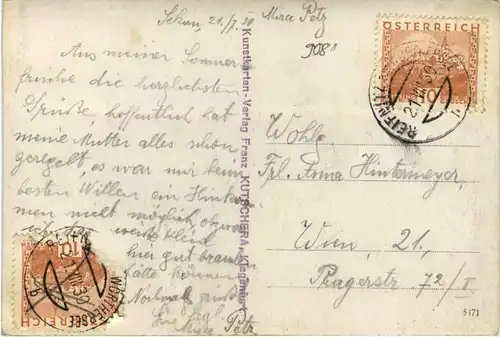 Sekirn, 21./7. 30
Mirca Petz
9081
Aus meiner Sommer
frische die herzlichsten
Grüße, hoffentlich hat
meine Mutter alles schon
geregelt, es war mir beim
besten Willen ein Hinkom
men nicht möglich, obzwar
ich
hier gut brauchen
hätte können
Nochmals
Mirca Petz
Kunstkarten-Verlag Franz KUTSCHERA, Klagenfurt
ÖSTERREICH
10
REIFNITZ
21.VII.30
Wohlg.
Frl. Anna Hintermeyer,
Wien, 21.,
Pragerstr 72/I
5471
10
WÖRTHERSEE
ÖSTERREICH